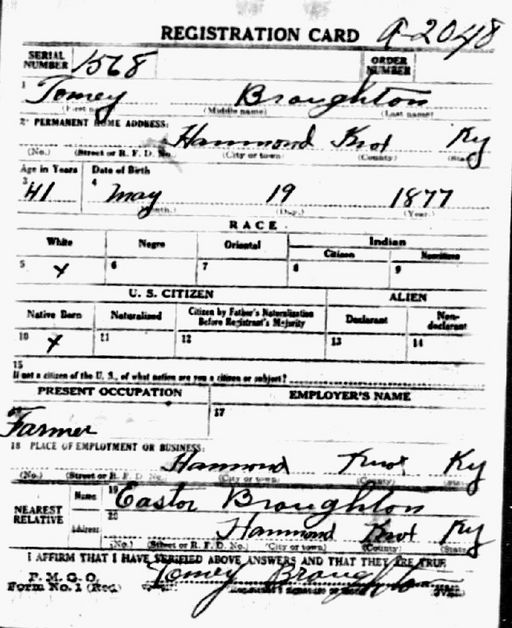 REGISTRATION CARD A-2048
SERIAL NUMBER 1568 ORDER NUMBER
1 Tomey Broughton
(First name) (Middle name) (Last name)
2 PERMANENT HOME ADDRESS:
Hammond Knox Ky
(No.) (Street or R. F. D. No.) (City or town) (County) (State)
Age in Years Date of Birth
3 41 4 May 19 1877
(Month.) (Day.) (Year.)
RACE
White Negro Oriental Indian
Citizen Noncitizen
5 x 6 7 8 9
U. S. CITIZEN ALIEN
Native Born Naturalized Citizen by Father's Naturalization Before Registrant's Majority Declarant Non-declarant
10 x 11 12 13 14
15
If not a citizen of the U. S., of what nation are you a citizen or subject?
PRESENT OCCUPATION EMPLOYER'S NAME
16 Farmer 17
18 PLACE OF EMPLOYMENT OR BUSINESS:
Hammond Knox Ky
(No.) (Street or R. F. D. No.) (City or town) (County) (State)
NEAREST RELATIVE Name 19 Castor Broughton
Address 20 Hammond Knox Ky
(No.) (Street or R. F. D. No.) (City or town) (County) (State)
I AFFIRM THAT I HAVE VERIFIED ABOVE ANSWERS AND THAT THEY ARE TRUE
P. M. G. O.
Form No. 1 (Red) Tomey Broughton